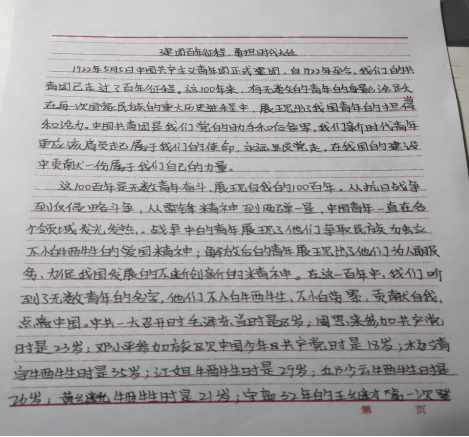 建团百年征程,勇担时代大任
1922年5月5日中国共产主义青年团正式建团,自1922年至今,我们的共
青团已走过了百年征程。这100年来,有无数的青年的身影活跃
在每一次国家民族的重大历史进程中,展现出了我国青年的担当
和活力。中国共青团是我们党的助手和后备军,我们新时代青年
更应该肩负起属于我们的使命,永远跟党走,在我国的建设
中贡献一份属于我们自己的力量。
这100年是无数青年奋斗,展现自我的100年。从抗日战争
到反侵略斗争,从雷锋精神到两弹一星,中国青年一直在各
个领域发光发热。战争中的青年展现了他们争取民族
不怕牺牲的爱国精神;解放后的青年展现出了他们为人民服
务,为促我国发展的不断创新的精神。在这一百年中,我们听
到了无数青年的名字,他们不怕牺牲,不怕苦累,贡献自我,
点亮中国。中共一大召开时毛泽东当时是28岁;周恩来参加共产党
时是23岁;邓小平参加旅欧中国少年共产党时是18岁;杨靖
宇牺牲时是35岁;江姐牺牲时是29岁;邱少云牺牲时是
26岁;黄继光牺牲时是21岁;守岛32年的王继才第一次登
第 页